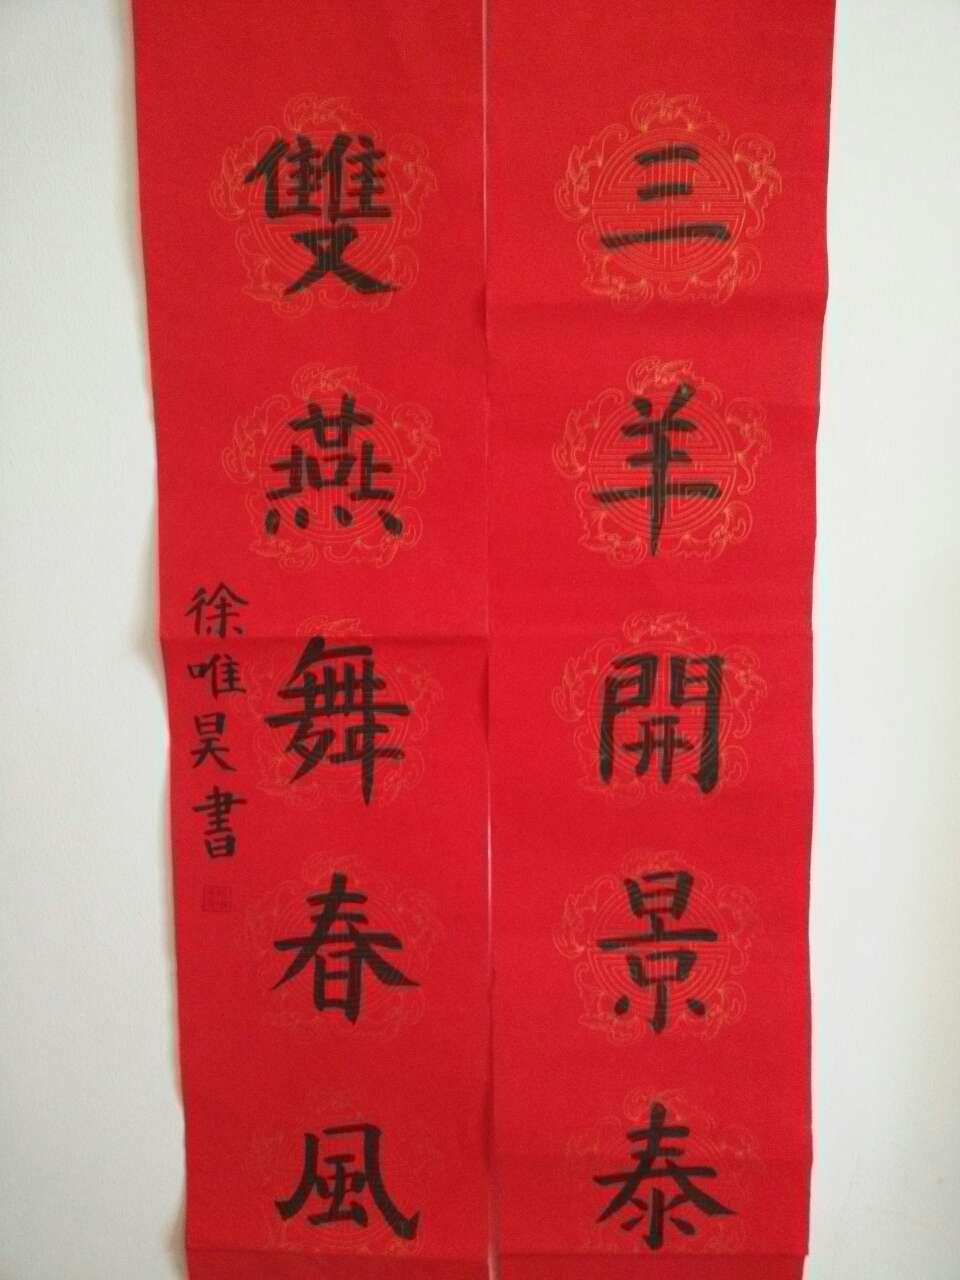 三羊開景泰
雙燕舞春風
徐唯昊書